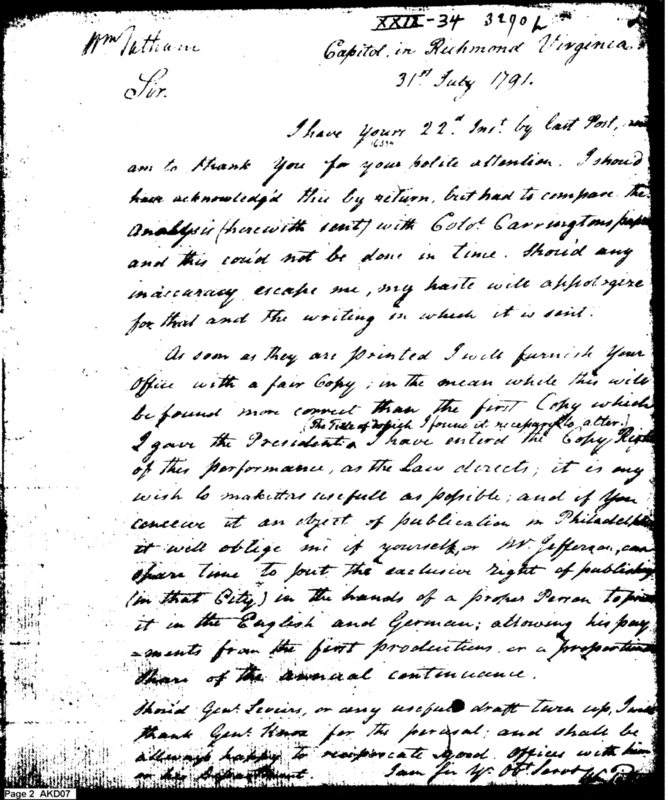 XXII-34 3290 L
Wm Tatham
Capitol in Richmond Virginia
31st July 1791.
Sir.
I have yours 22d Inst. by last Post,
am to thank you for your polite attention. I should
have acknowledg'd this by return, but had to compare the
Analysis (herewith sent) with Colo. Carringtons
and this cou'd not be done in time. Shou'd any
inaccuracy escape me, my haste will appologize
for that and the writing in which it is sent.
As soon as they are printed I will furnish your
Office with a fair Copy; in the mean while this will
be found more correct than the first Copy which
(The Title of which I found it necessary to alter.)
I gave the President. I have enterd the Copy Right
of this performance, as the Law directs; it is my
wish to make it as usefull as possible; and if you
conceive it an object of publication in Philadelphia
it will oblige me if yourself, or Mr. Jefferson, can
spare time to put the exclusive right of publishing
(in that City) in the hands of a proper Person to print
it in the English and German; allowing his pay
=ments from the first productions or a proportion
share of the annual continuance.
Should Genl. Seviers, or any usefull draft turn up, I will
thank Genl. Knox for the perusal; and shall be
allways happy to reciprocate good offices with him
or his Department. I am Sir Yr. Obt. Servt
Page 2 AKD07